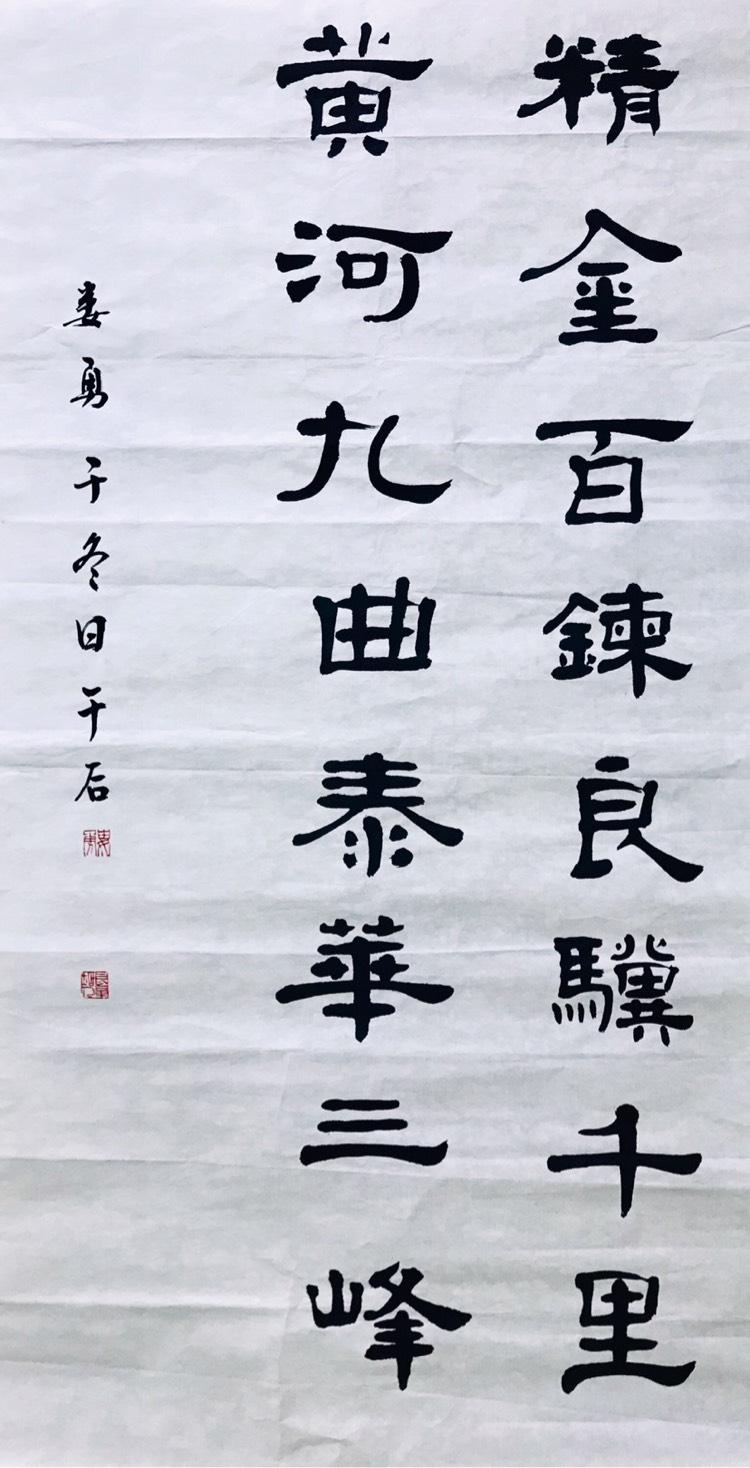 精金百鍊良驥千里
黄河九曲泰華三峰
娄勇于冬日于石